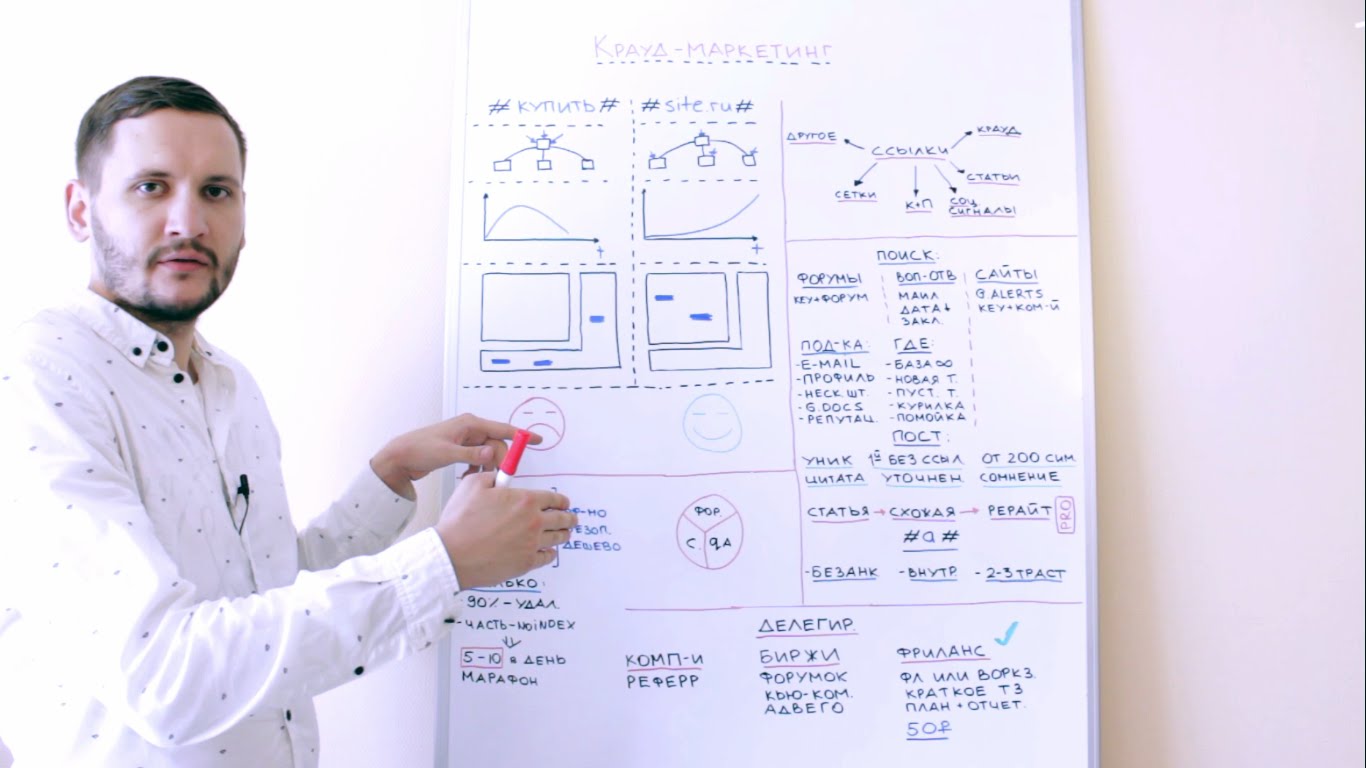 КРАУД-МАРКЕТИНГ
#КУПИТЬ#
t
#site.ru#
t
ДРУГОЕ
КРАУД
ССЫЛКИ
СТАТЬИ
СЕТКИ
К+П
СОЦ.
СИГНАЛЫ
ПОИСК:
ФОРУМЫ
KEY+ФОРУМ
ВОП-ОТВ
МАИЛ
ДАТА↓
ЗАКЛ.
САЙТЫ
G.ALERTS
KEY+КОМ-Й
ПОД-КА:
-E-MAIL
-ПРОФИЛЬ
-НЕСК.ШТ.
-G.DOCS
-РЕПУТАЦ.
ГДЕ:
-БАЗА∞
-НОВАЯ Т.
-ПУСТ. Т.
-КУРИЛКА
-ПОМОЙКА
ПОСТ:
УНИК 1й БЕЗ ССЫЛ ОТ 200 СИМ.
ЦИТАТА УТОЧНЕН. СОМНЕНИЕ
СТАТЬЯ → СХОЖАЯ → РЕРАЙТ PRO
#a#
-БЕЗАНК -ВНУТР -2-3 ТРАСТ
ДЕШЕВО
ФОР.
С. QA
90%-УДАЛ.
-ЧАСТЬ-NOINDEX
5-10 В ДЕНЬ
МАРАФОН
ДЕЛЕГИР.
КОМП-И
РЕФЕРР
БИРЖИ
ФОРУМОК
КЬЮ-КОМ.
АДВЕГО
ФРИЛАНС
ФЛ ИЛИ ВОРКЗ.
КРАТКОЕ ТЗ
ПЛАН+ОТЧЕТ.
50₽